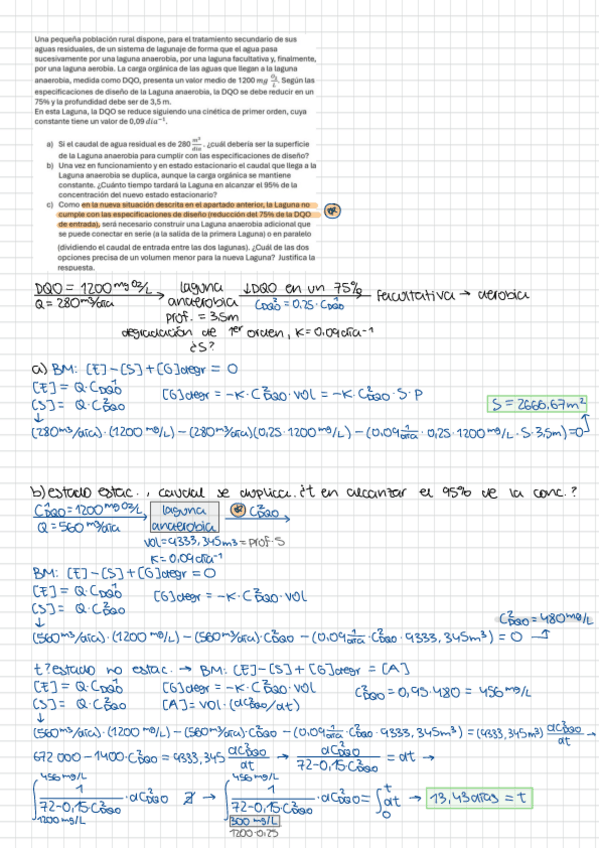 Una pequeña población rural dispone, para el tratamiento secundario de sus
aguas residuales, de un sistema de lagunaje de forma que el agua pasa
sucesivamente por una laguna anaerobia, por una laguna facultativa y, finalmente,
por una laguna aerobia. La carga orgánica de las aguas que llegan a la laguna
anaerobia, medida como DQO, presenta un valor medio de 1200 mg O₂/L. Según las
especificaciones de diseño de la Laguna anaerobia, la DQO se debe reducir en un
75% y la profundidad debe ser de 3,5 m.
En esta Laguna, la DQO se reduce siguiendo una cinética de primer orden, cuya
constante tiene un valor de 0,09 dia⁻¹.
a) Si el caudal de agua residual es de 280 m³/dia, ¿cuál debería ser la superficie
de la Laguna anaerobia para cumplir con las especificaciones de diseño?
b) Una vez en funcionamiento y en estado estacionario el caudal que llega a la
Laguna anaerobia se duplica, aunque la carga orgánica se mantiene
constante. ¿Cuánto tiempo tardará la Laguna en alcanzar el 95% de la
concentración del nuevo estado estacionario?
c) Como en la nueva situación descrita en el apartado anterior, la Laguna no
cumple con las especificaciones de diseño (reducción del 75% de la DQO
de entrada), será necesario construir una Laguna anaerobia adicional que
se puede conectar en serie (a la salida de la primera Laguna) o en paralelo
(dividiendo el caudal de entrada entre las dos lagunas). ¿Cuál de las dos
opciones precisa de un volumen menor para la nueva Laguna? Justifica la
respuesta.
DQO = 1200 mg O2/L → laguna ↓DQO en un 75% → Facultativa → aerobia
Q = 280 m³/día anaerobia C²DQO = 0,25 · C¹DQO
prof. = 3,5m
degradación de 1er orden, K = 0,09 día⁻¹
¿S?
a) BM: [E] - [S] + [G]degr = 0
[E] = Q · C¹DQO [G]degr = -K · C²DQO · VOL = -K · C²DQO · S · P
[S] = Q · C²DQO S = 2666,67 m²
↓
(280 m³/día) · (1200 mg/L) - (280 m³/día)(0,25 · 1200 mg/L) - (0,09 1/día · 0,25 · 1200 mg/L · S · 3,5m) = 0
b) estado estac., caudal se duplica. ¿t en alcanzar el 95% de la conc.?
C¹DQO = 1200 mg O2/L → laguna → C²DQO
Q = 560 m³/día anaerobia
VOL = 9333,345 m³ = prof · S
K = 0,09 día⁻¹
BM: [E] - [S] + [G]degr = 0
[E] = Q · C¹DQO [G]degr = -K · C²DQO · VOL
[S] = Q · C²DQO
↓ C²DQO = 480 mg/L
(560 m³/día) · (1200 mg/L) - (560 m³/día) · C²DQO - (0,09 1/día · C²DQO · 9333,345 m³) = 0
t? estado no estac. → BM: [E] - [S] + [G]degr = [A]
[E] = Q · C¹DQO [G]degr = -K · C²DQO · VOL C²DQO = 0,95 · 480 = 456 mg/L
[S] = Q · C²DQO [A] = VOL · (dC²DQO/dt)
↓
(560 m³/día) · (1200 mg/L) - (560 m³/día) · C²DQO - (0,09 1/día · C²DQO · 9333,345 m³) = (9333,345 m³) dC²DQO/dt →
672 000 - 1400 · C²DQO = 9333,345 dC²DQO/dt → dC²DQO/72-0,15·C²DQO = dt →
∫ 456 mg/L 1200 mg/L 1/72-0,15·C²DQO · dC²DQO → ∫ 456 mg/L 300 mg/L 1/72-0,15·C²DQO · dC²DQO = ∫ t 0 dt → 13,43 días = t
1200·0,25